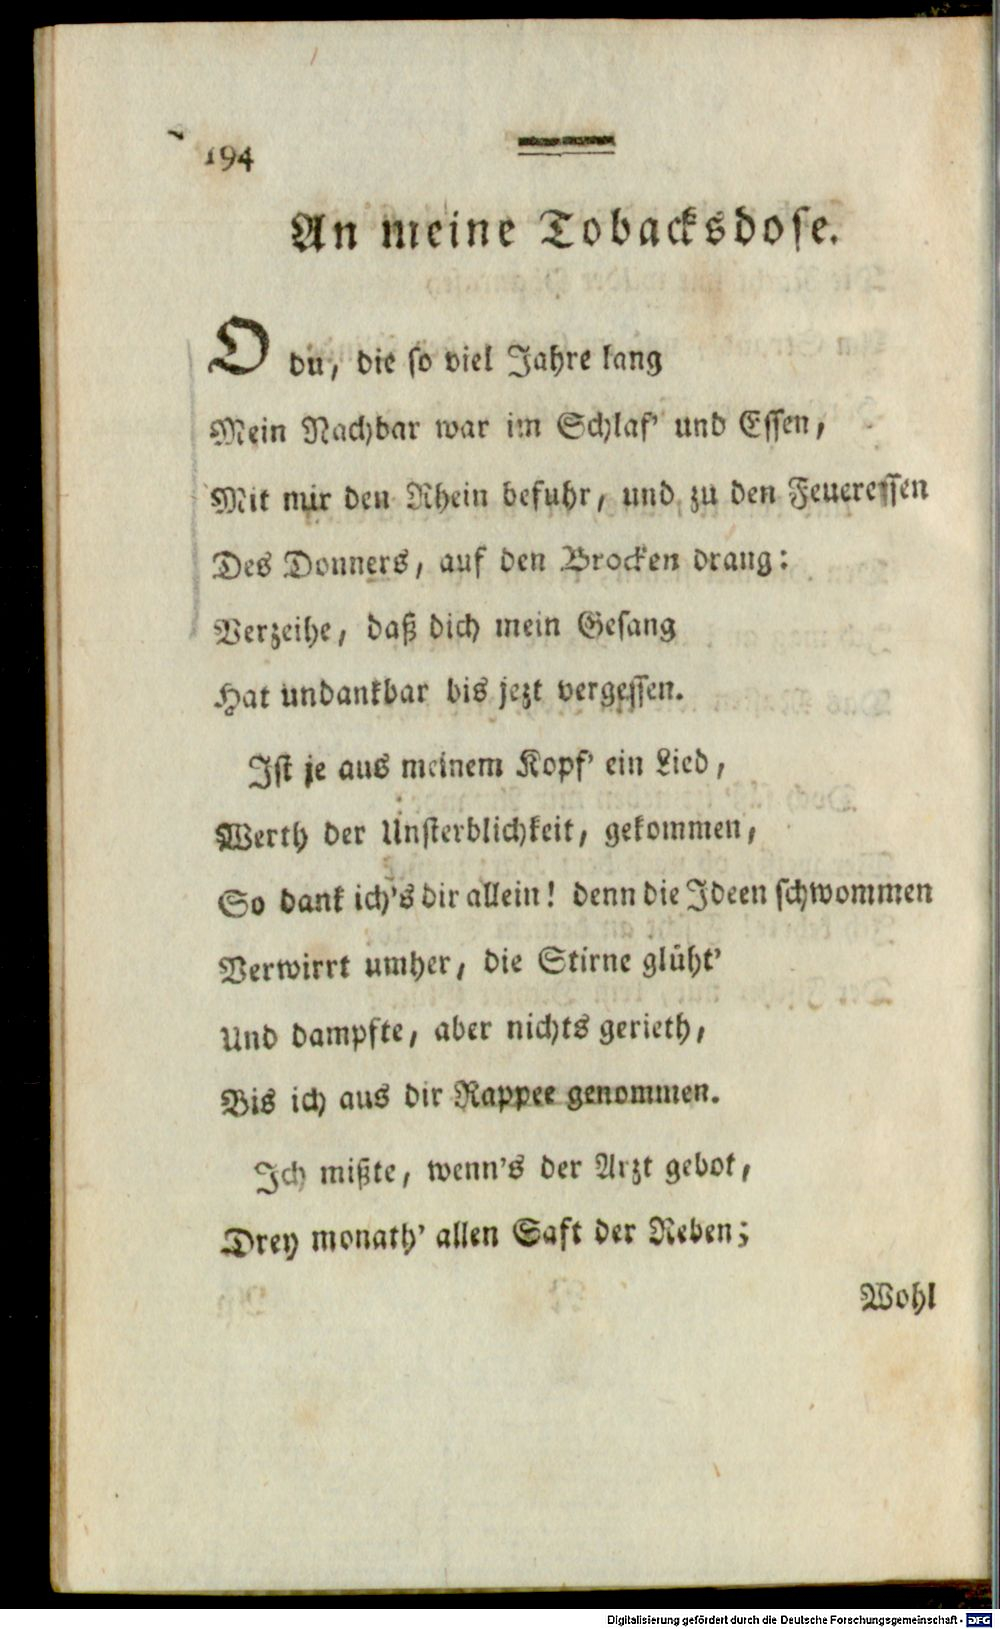 194
An meine Tobacksdose.
O du, die so viel Jahre lang
Mein Nachbar war im Schlaf' und Essen,
Mit mir den Rhein befuhr, und zu den Feueressen
Des Donners, auf den Brocken drang:
Verzeihe, daß dich mein Gesang
Hat undankbar bis jezt vergessen.
Ist je aus meinem Kopf' ein Lied,
Werth der Unsterblichkeit, gekommen,
So dank ich's dir allein! denn die Ideen schwommen
Verwirrt umher, die Stirne glüht'
Und dampfte, aber nichts gerieth,
Bis ich aus dir Rappee genommen.
Ich mißte, wenn's der Arzt gebot,
Drey monath' allen Saft der Reben;
Wohl
Digitalisierung gefördert durch die Deutsche Forschungsgemeinschaft - DFG